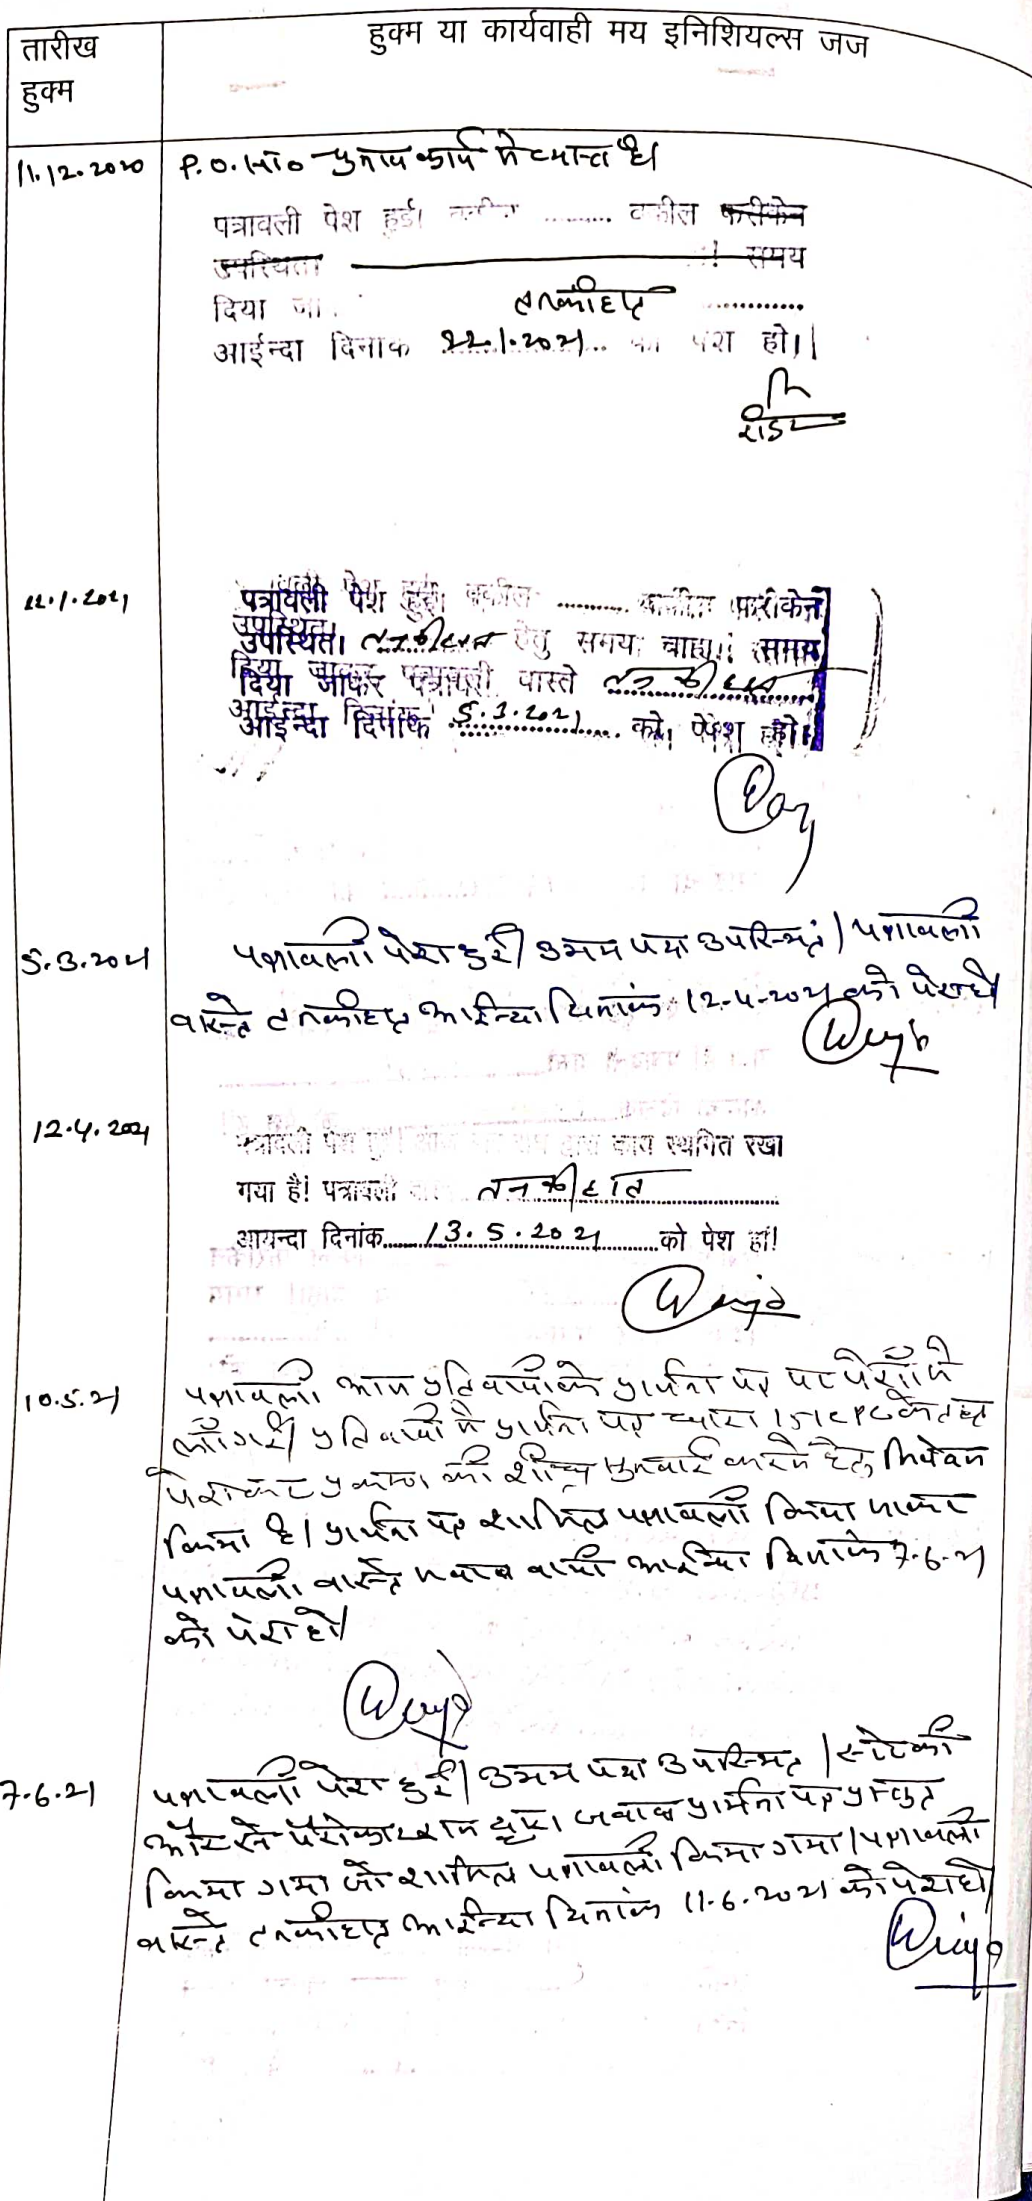 तारीख
हुक्म
हुक्म या कार्यवाही मय इनिशियल्स जज
11.12.2020 P.O. सा० चुनाव कार्य में व्यस्त है।
पत्रावली पेश हुई। वकील .......... वकील फरीकेन
उपस्थित। समय
दिया जा. तनकीहात ............
आईन्दा दिनांक 22.1.2021 को पेश हो।
22.1.2021 पत्रावली पेश हुई। वकील .......... वकील फरीकेन
उपस्थित। तनकीहात हेतु समय चाहा। समय
दिया जाकर पत्रावली वास्ते तनकीहात
आईन्दा दिनांक 5.3.2021 को पेश हो।
5.3.2021 पत्रावली पेश हुई। उभय पक्ष उपस्थित। पत्रावली
वास्ते तनकीहात आईन्दा दिनांक 12-4-2021 को पेश हो।
12.4.2021 पत्रावली पेश हुई। द्वारा कार्य स्थगित रखा
गया है! पत्रावली तनकीहात
आयन्दा दिनांक 13.5.2021 को पेश हो!
10.5.21 पत्रावली आज प्रतिवादी के प्रार्थना पत्र पर पेशी में
ली गई। प्रतिवादी ने प्रार्थना पत्र धारा 151 CPC के तहत
पेश कर प्रकरण की शीघ्र सुनवाई करने हेतु निवेदन
किया है। प्रार्थना पत्र शामिल पत्रावली किया जाकर
पत्रावली वास्ते जवाब वादी आईन्दा दिनांक 7.6.21
को पेश हो।
7.6.21 पत्रावली पेश हुई। उभय पक्ष उपस्थित। स्टेट की
ओर से द्वारा जवाब प्रार्थना पत्र प्रस्तुत
किया गया जो शामिल पत्रावली किया गया। पत्रावली
वास्ते तनकीहात आईन्दा दिनांक 11.6.2021 को पेश हो।